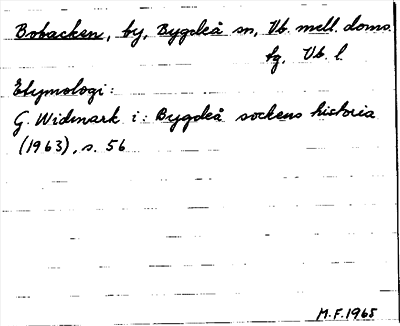 Bobacken, by, Bygdeå sn, Vb. mell. doms.
tg, Vb. l.
Etymologi:
G. Widmark i: Bygdeå sockens historia
(1963), s. 56
M.F.1965